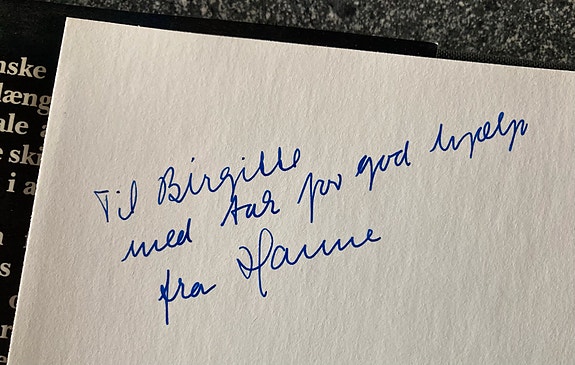 Til Birgitte
med tak for god hjælp
fra Hanne
nske
læng
ale
ski
i a